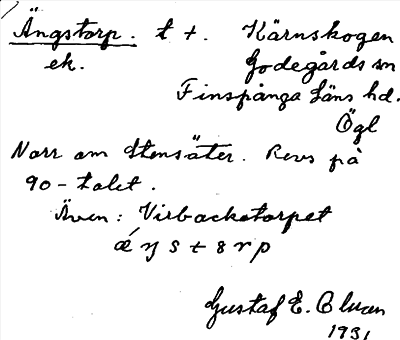 Ängstorp. t +. Kärnskogen
ek. Godegårds sn
Finspånga Läns hd.
Ögl
Norr om Stensäter. Revs på
90-talet.
Även: Virbackatorpet
Gustaf E. Olson
1931